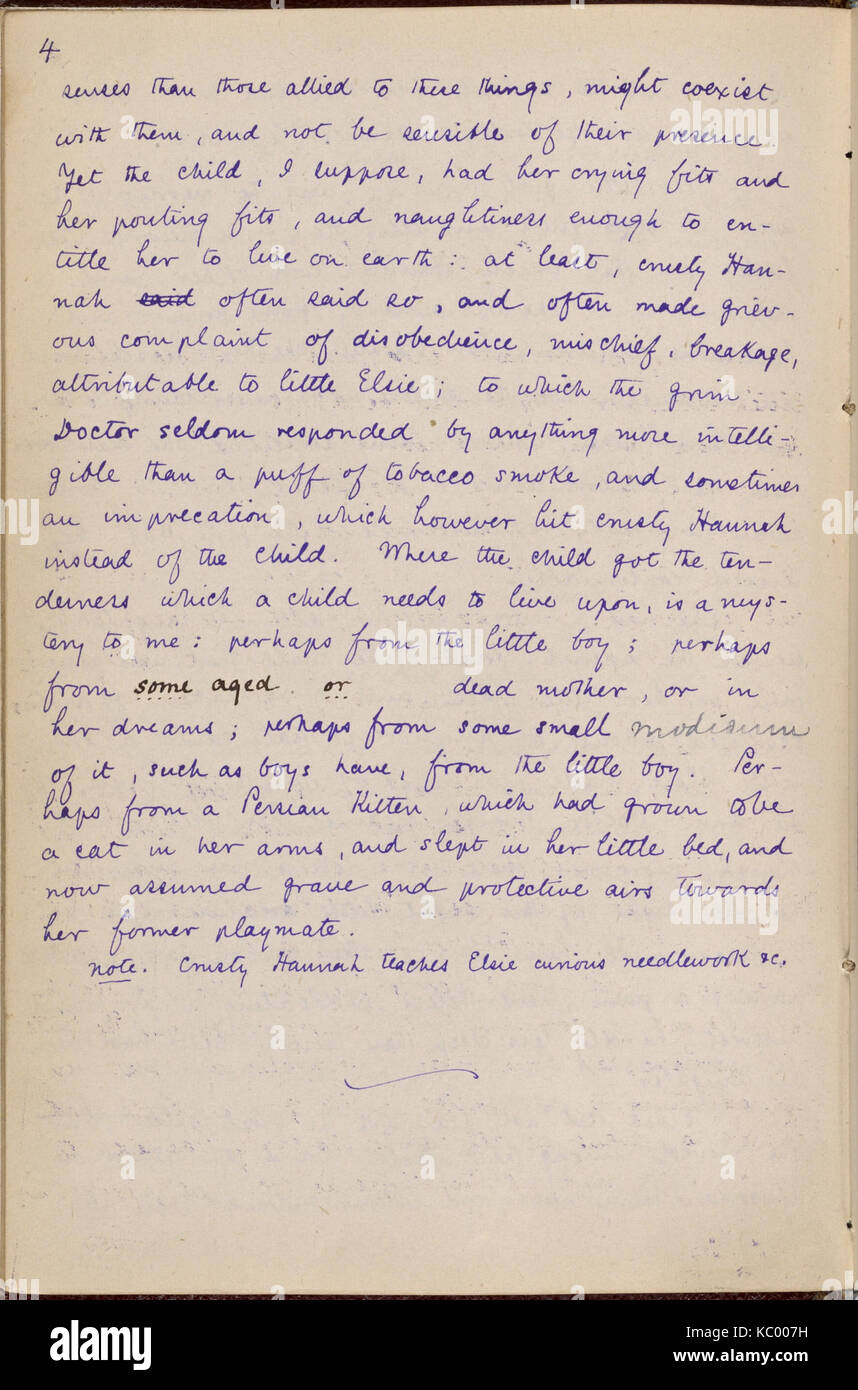 4
senses than those allied to these things, might coexist
with them, and not be sensible of their presence.
Yet the child, I suppose, had her crying fits and
her pouting fits, and naughtiness enough to en-
title her to live on earth: at least, crusty Han-
nah said often said so, and often made griev-
ous complaint of disobedience, mischief, breakage,
attributable to little Elsie; to which the grim
Doctor seldom responded by anything more intelli-
gible than a puff of tobacco smoke, and sometimes
an imprecation, which however hit crusty Hannah
instead of the child. Where the child got the ten-
derness which a child needs to live upon, is a mys-
tery to me: perhaps from the little boy; perhaps
from some aged or dead mother, or in
her dreams; perhaps from some small modicum
of it, such as boys have, from the little boy. Per-
haps from a Persian Kitten, which had grown to be
a cat in her arms, and slept in her little bed, and
now assumed grave and protective airs towards
her former playmate.
note. Crusty Hannah teaches Elsie curious needlework &c.
alamy
Image ID: KC007H
www.alamy.com